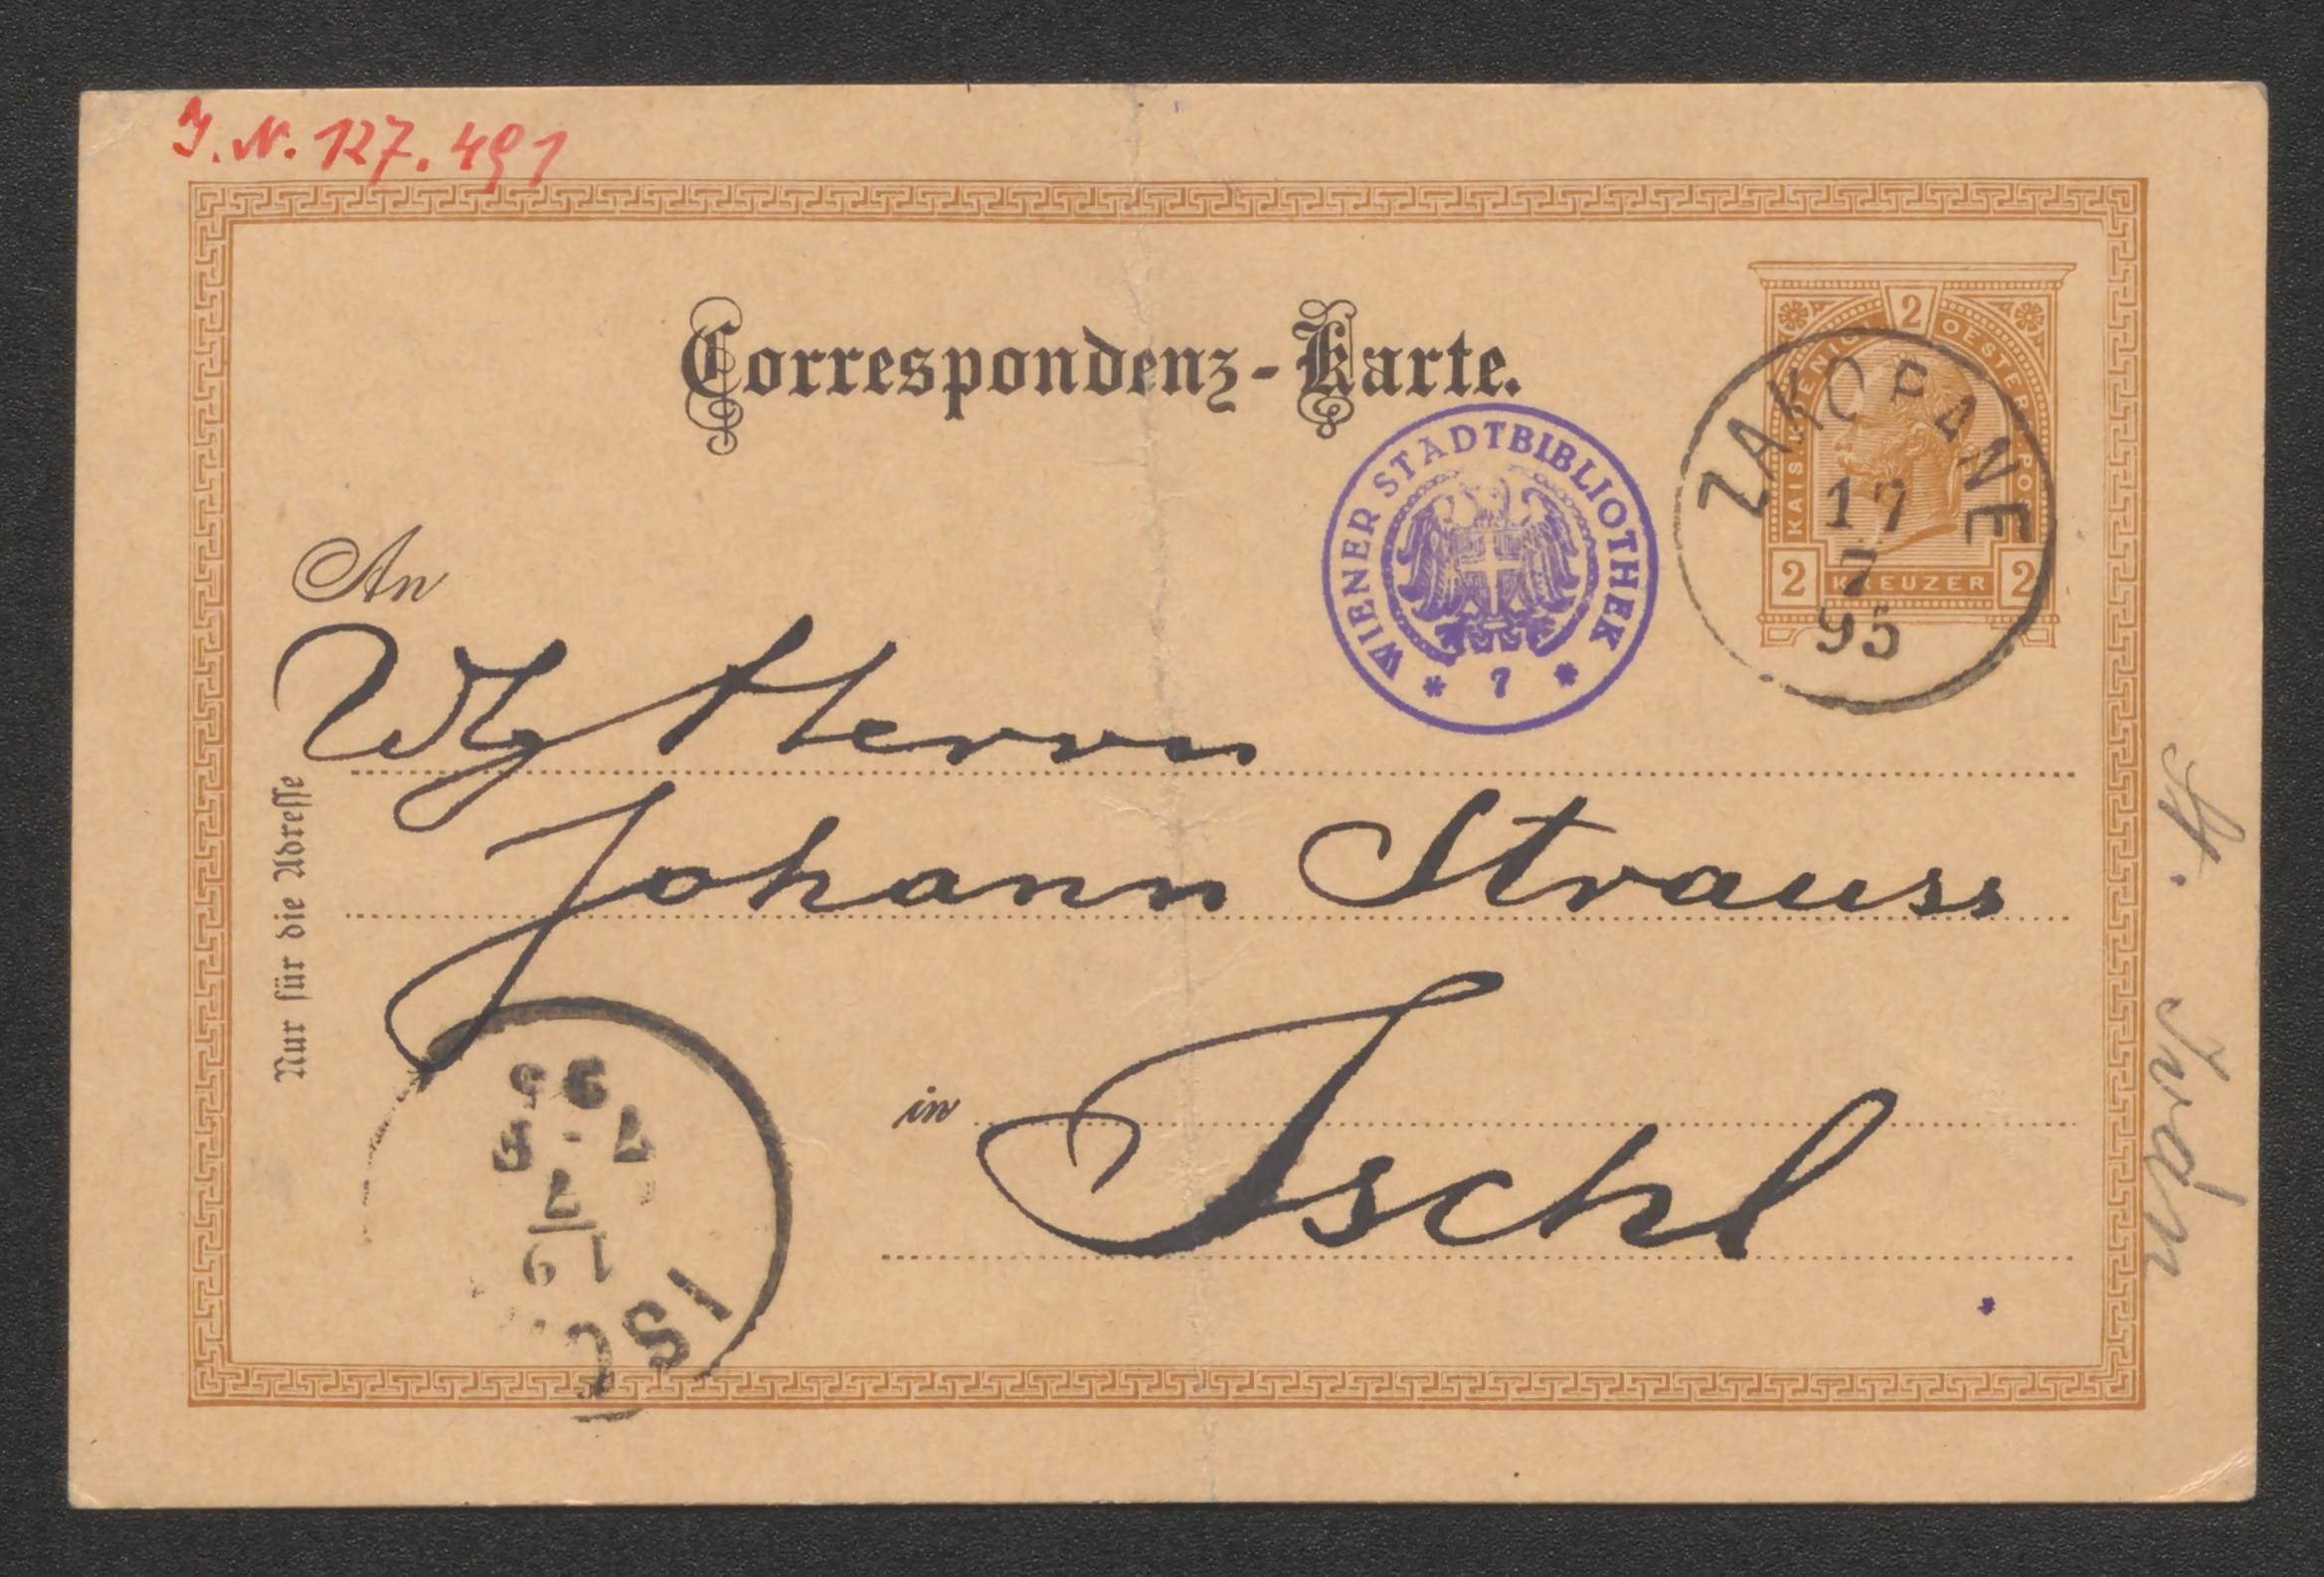 J. N. 127.491
Correspondenz-Karte.
2
KAIS. KOENIGL. OESTERR. POST
2 KREUZER 2
ZAKOPANE
17
7
95
WIENER STADTBIBLIOTHEK
* 7 *
An
Herrn
Johann Strauss
in
Ischl
Nur für die Adresse
ISC
19
7
7-9
95